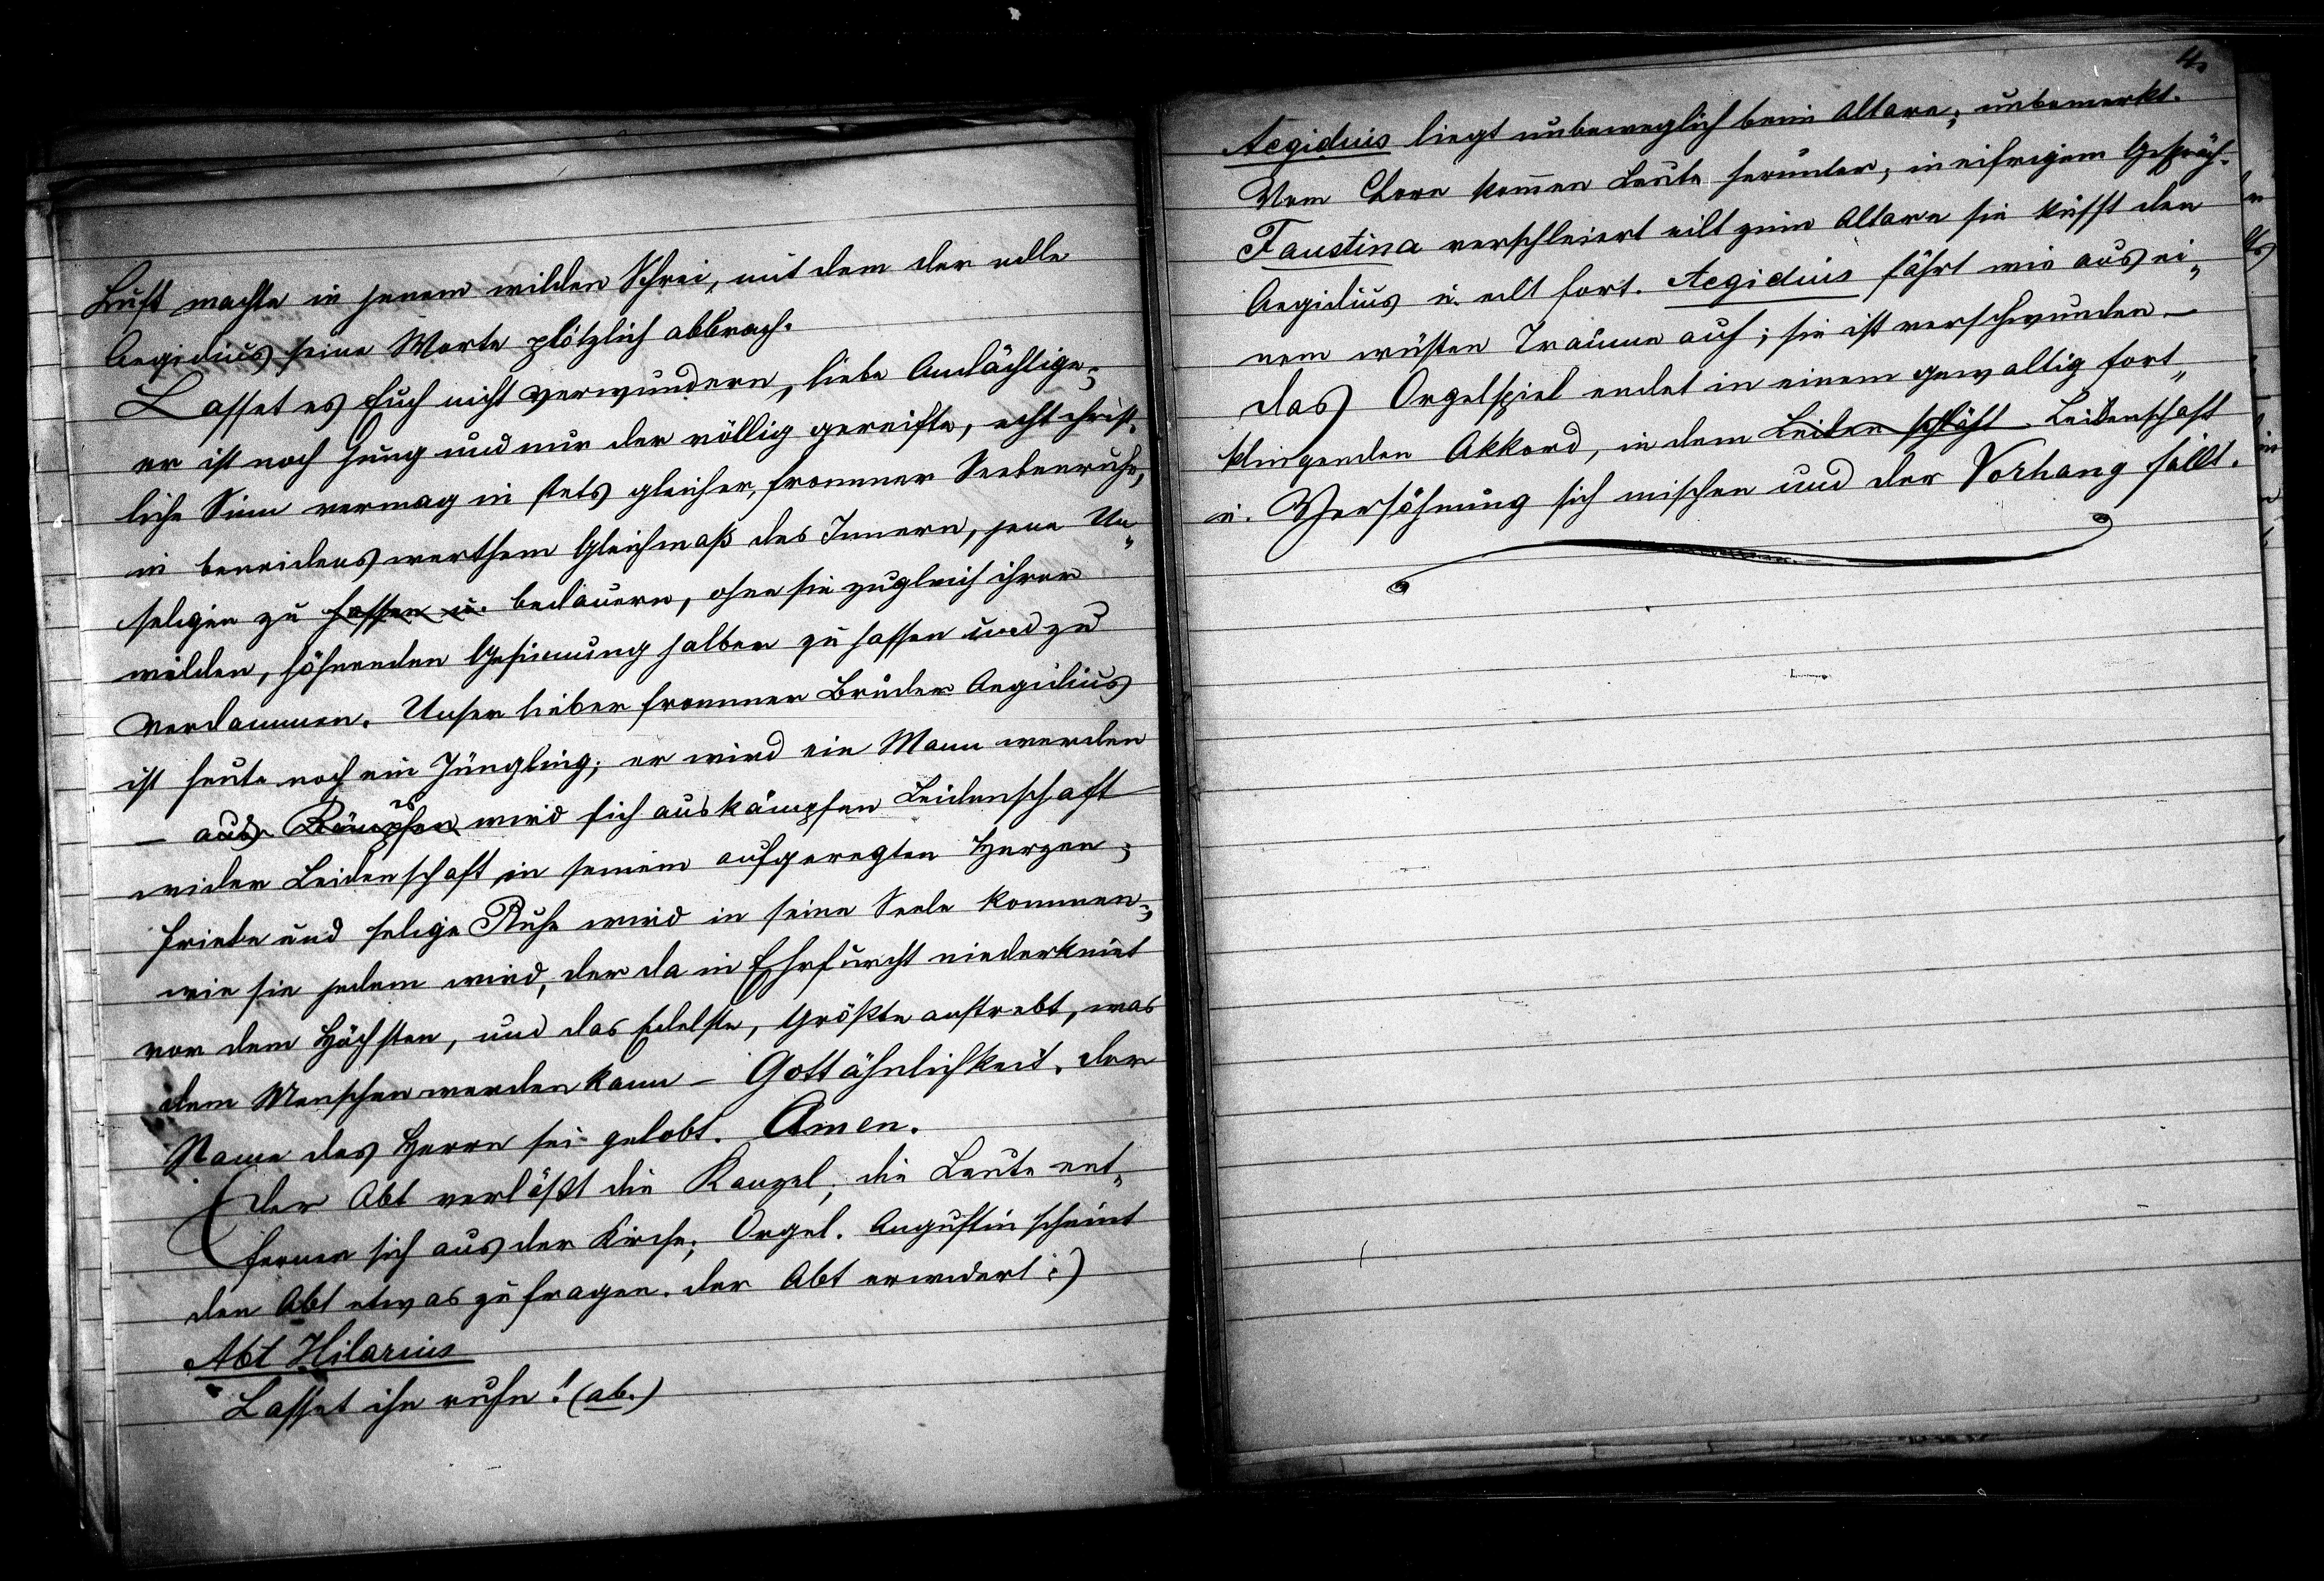 Luft machte in jenem wilden Schrei, mit dem der edle
Aegidius seine Worte plötzlich abbrach.
Lasset es Euch nicht verwundern, liebe Andächtige;
er ist noch jung und nur der völlig gereifte, echt christ-
liche Sinn vermag in stets gleicher, frommer Seelenruhe,
in beneidenswerthem Gleichmaß des Innern, jene Un„
seligen zu hassen u. bedauern, ohne sie zugleich ihrer
wilden, höhnenden Gesinnung halber zu hassen und zu
verdammen. Unser lieber frommer Bruder Aegidius
ist heute noch ein Jüngling; er wird ein Mann werden
– aus Kämpfen es wird sich auskämpfen Leidenschaft
wider Leidenschaft in seinem aufgeregten Herzen;
Friede und selige Ruhe wird in seine Seele kommen,
wie sie jedem wird, der da in Ehrfurcht niederkniet
vor dem Höchsten, und das Edelste, Größte anstrebt, was
dem Menschen werden kann – Gottähnlichkeit. Der
Name des Herrn sei gelobt. Amen.
(Der Abt verläßt die Kanzel; die Leute ent„
fernen sich aus der Kirche; Orgel. Augustin scheint
den Abt etwas zu fragen. Der Abt erwidert:)
Abt Hilarius
Lasset ihn ruhn! (ab.)
4.
Aegidius liegt unbeweglich beim Altare; unbemerkt.
Vom Chore kom̅en Leute herunter, in eifrigem Gespräch.
Faustina verschleiert eilt zum Altare sie küsst den
Aegidius u. eilt fort. Aegidius fährt wie aus ei„
nem wüsten Traume auf; sie ist verschwunden –
das Orgelspiel endet in einem gewaltig fort„
klingenden Akkord, in dem Leidenschaft
u. Versöhnung sich mischen und der Vorhang fällt.